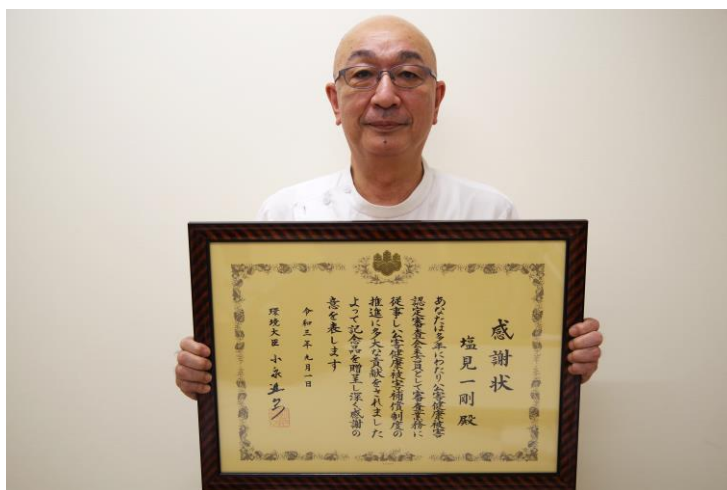 感謝状
塩見一剛殿
あなたは多年にわたり公害健康被害
認定審査会委員として審査業務に
従事し公害健康被害補償制度の
推進に多大な貢献をされました
よって記念品を贈呈し深く感謝の
意を表します
令和三年九月一日
環境大臣 小泉進次郎